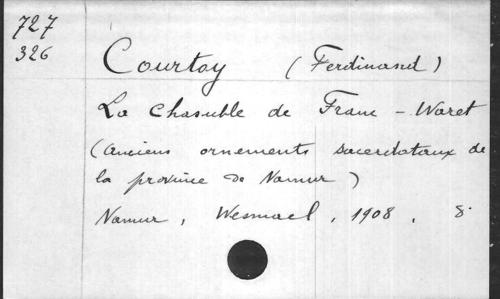 727
326
Courtoy (Ferdinand)
La Chasuble de Franc - Waret
(anciens ornements sacerdotaux de
la province de Namur)
Namur, Wesmael, 1908. 8.